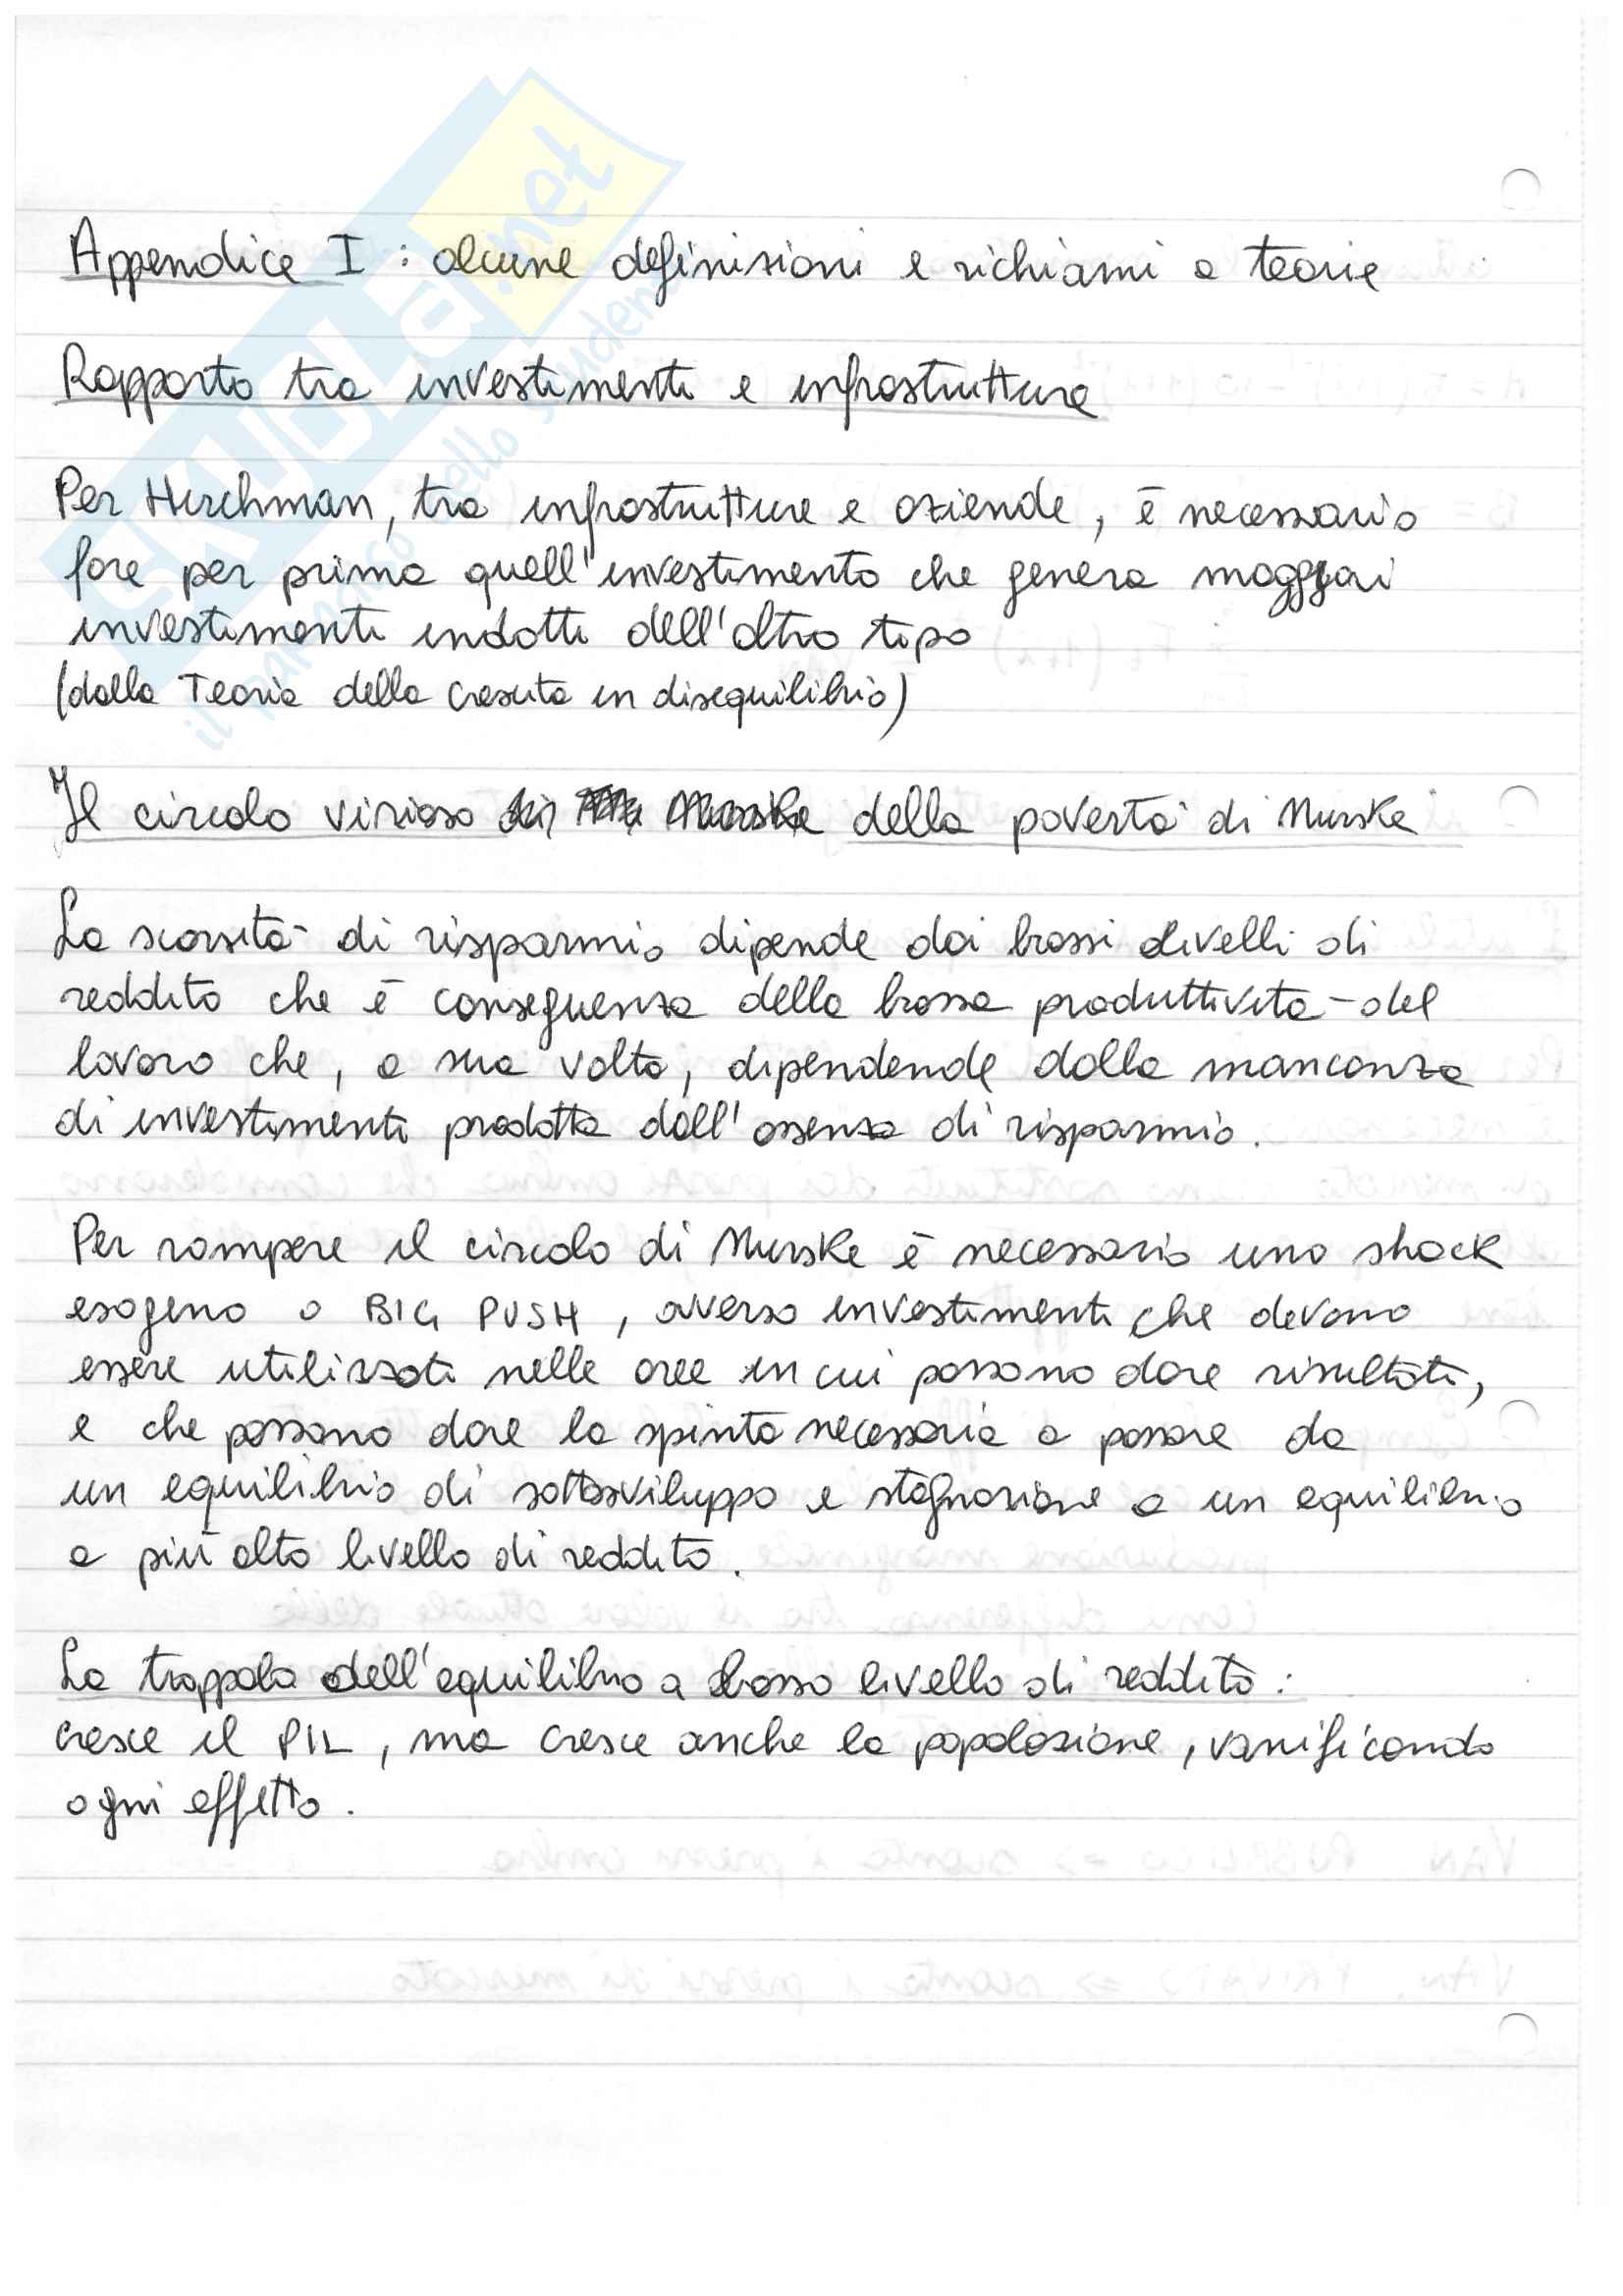 Appendice I : alcune definizioni e richiami a teorie
Rapporto tra investimenti e infrastrutture
Per Hirchman, tra infrastrutture e aziende, è necessario
fare per prima quell'investimento che genera maggiori
investimenti indotti dell'altro tipo
(dalla Teoria della crescita in disequilibrio)
Il circolo vizioso di Nurske della povertà di Nurske
La scarsità di risparmio dipende dai bassi livelli di
reddito che è conseguenza della bassa produttività del
lavoro che, a sua volta, dipendende dalla mancanza
di investimenti prodotta dall'assenza di risparmio.
Per rompere il circolo di Nurske è necessario uno shock
esogeno o BIG PUSH, ovvero investimenti che devono
essere utilizzati nelle aree in cui possono dare risultati,
e che possano dare la spinta necessaria a passare da
un equilibrio di sottosviluppo e stagnazione a un equilibrio
a più alto livello di reddito.
La trappola dell'equilibrio a basso livello di reddito :
cresce il PIL, ma cresce anche la popolazione, vanificando
ogni effetto.
SKUOLA.net